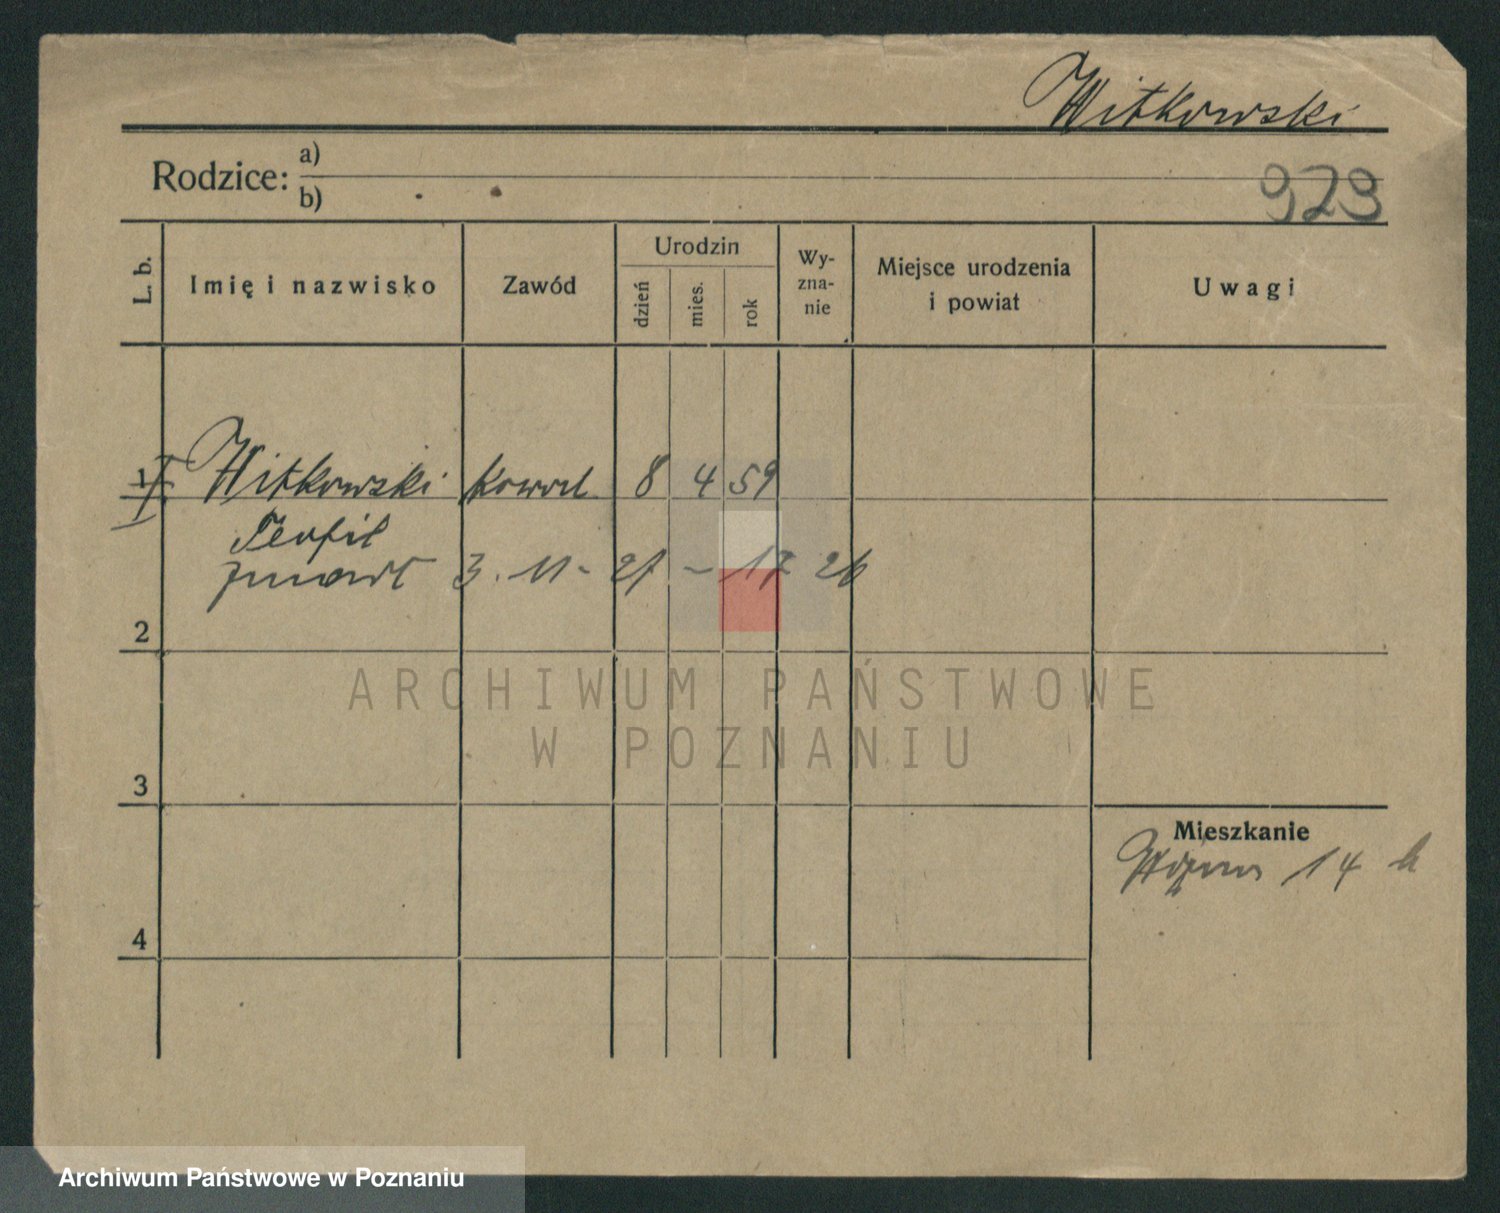 Witkowski
Rodzice: a)
b)
929
L. b.
Imię i nazwisko
Zawód
Urodzin
dzień
mies.
rok
Wy-
zna-
nie
Miejsce urodzenia
i powiat
Uwagi
1 Witkowski kowal 8 4 59
Teofil
zmarł 3. 11 - 21 - 17 26
2
ARCHIWUM PAŃSTWOWE
W POZNANIU
3
Mieszkanie
14
4
Archiwum Państwowe w Poznaniu